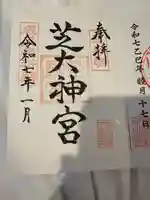 奉拝
芝大神宮
令和七年一月
令和七乙巳年
十七日